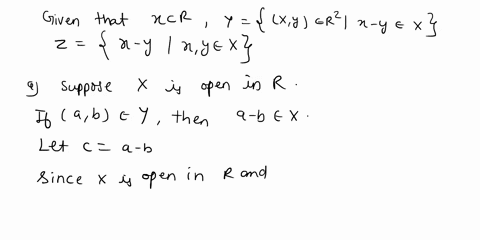 Given that x⊂R, Y = {(x,y) ∈R² | x-y ∈ X}
Z = { x-y | x,y ∈ X}
a) Suppose X is open in R.
If (a,b) ∈ Y, then a-b ∈ X.
Let c = a-b
Since X is open in R and